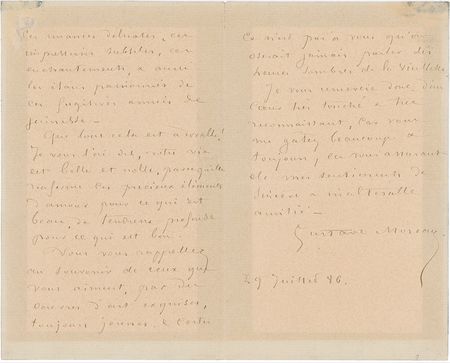 Ces nuances délicates, ces
impressions subtiles, ces
enchantements, & aussi
les élans passionnés de
ces fugitives années de
jeunesse.
Que tout cela est
Je vous l'ai dit, votre vie
est belle et noble, puisqu'elle
renferme ces précieux éléments
d'amour pour ce qui est
beau, de tendresse profonde
pour ce qui est bon.
Vous vous rappelez
au souvenir de ceux qui
vous aiment, par des
œuvres d'art exquises,
toujours jeunes, &
Ce n'est pas à vous qu'on
oserait jamais parler des
heures sombres de la vieillesse.
Je vous remercie donc d'un
cœur très touché & très
reconnaissant, car vous
me gâtez beaucoup &
toujours, en vous assurant
de mes sentiments de
sincère & inaltérable
amitié.
Gustave Moreau
29 Juillet 86.